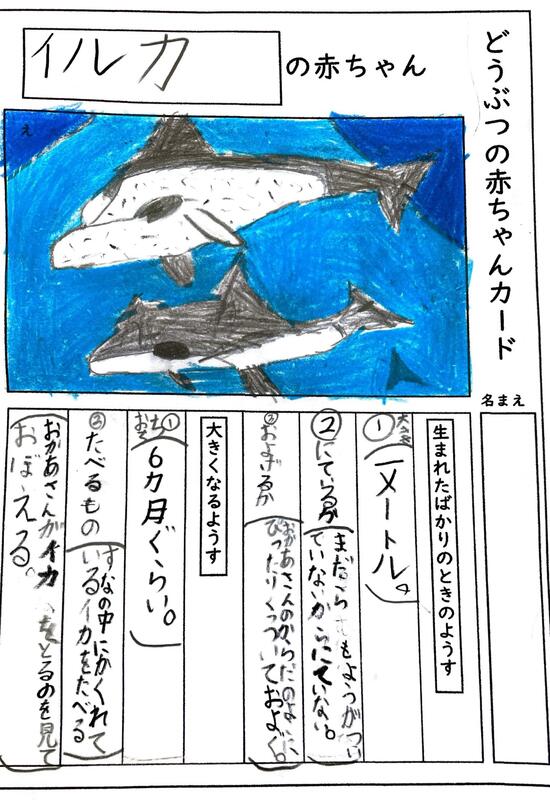 どうぶつの赤ちゃんカード
名まえ
イルカの赤ちゃん
え
生まれたばかりのときのようす
①大きさ(一メートル。)
②にているか(まだ もようがつい
ていないからにていない。)
③およげるか(おかあさんのからだのよこに、
ぴったりくっついておよぐ。)
大きくなるようす
①おちち(6カ月ぐらい。)
②たべるもの(すなの中にかくれて
いるイカをたべる)
(おかあさんがイカ をとるのを見て
おぼえる。)